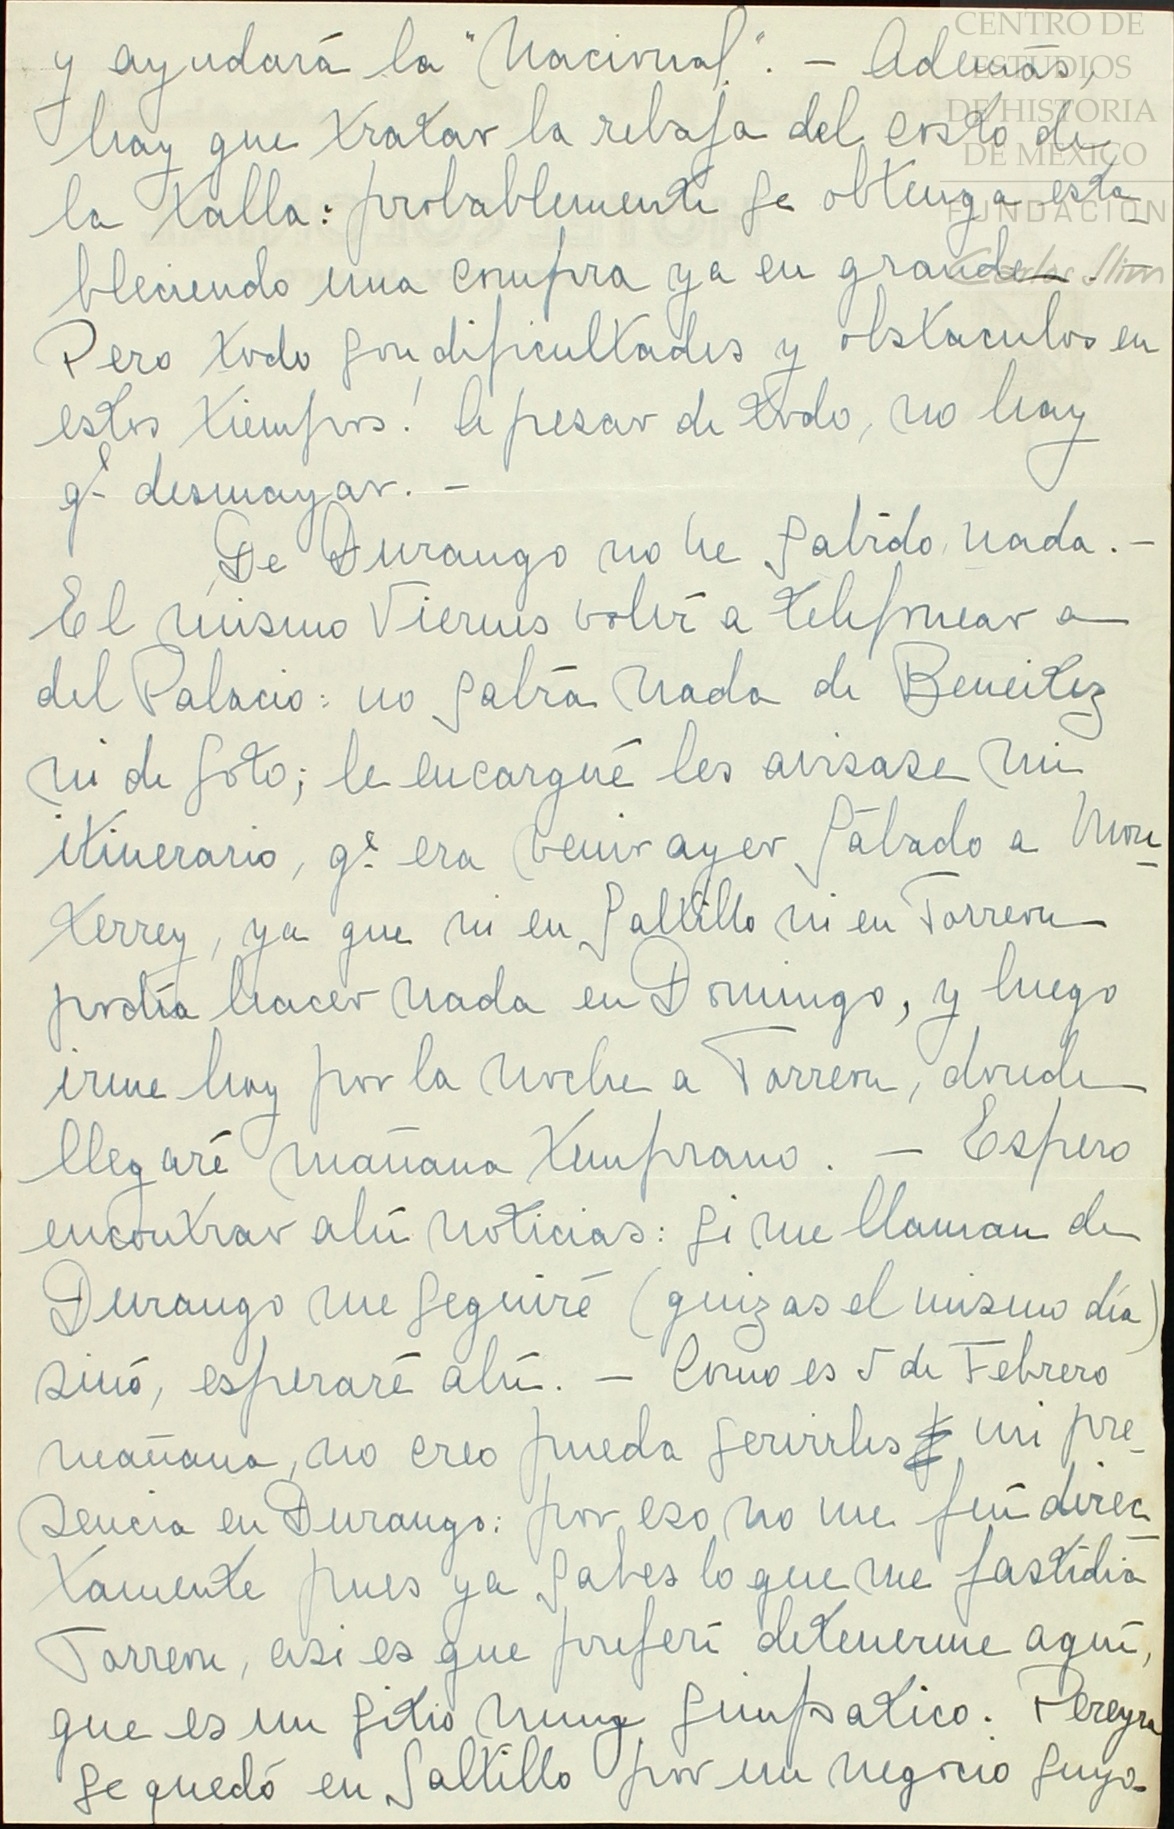 CENTRO DE
ESTUDIOS
DE HISTORIA
DE MÉXICO
FUNDACIÓN
Carlos Slim
y ayudará la "Nacional". - Además,
hay que tratar la rebaja del costo de
la talla: probablemente se obtenga esta-
bleciendo una compra ya en grande. -
Pero todo son dificultades y obstaculos en
estos tiempos! A pesar de todo, no hay
qe desmayar. -
De Durango no he sabido nada. -
El mismo Viernes volví a telefonear a
del Palacio: no sabía nada de Beneitez
ni de Soto; le encargué les avisase mi
itinerario, qe era venir ayer Sábado a Mon-
terrey, ya que ni en Saltillo ni en Torreon
podía hacer nada en Domingo, y luego
irme hoy por la noche a Torreon, donde
llegaré mañana temprano. - Espero
encontrar ahí noticias: si me llaman de
Durango me seguiré (quizas el mismo día)
sinó, esperaré ahí. - Como es 5 de Febrero
mañana, no creo pueda servirles mi pre-
sencia en Durango: por eso no me fuí direc-
tamente pues ya sabes lo que me fastidia
Torreon, asi es que preferí detenerme aquí,
que es un sitio muy simpatico. Pereyra
se quedó en Saltillo por un negocio suyo-